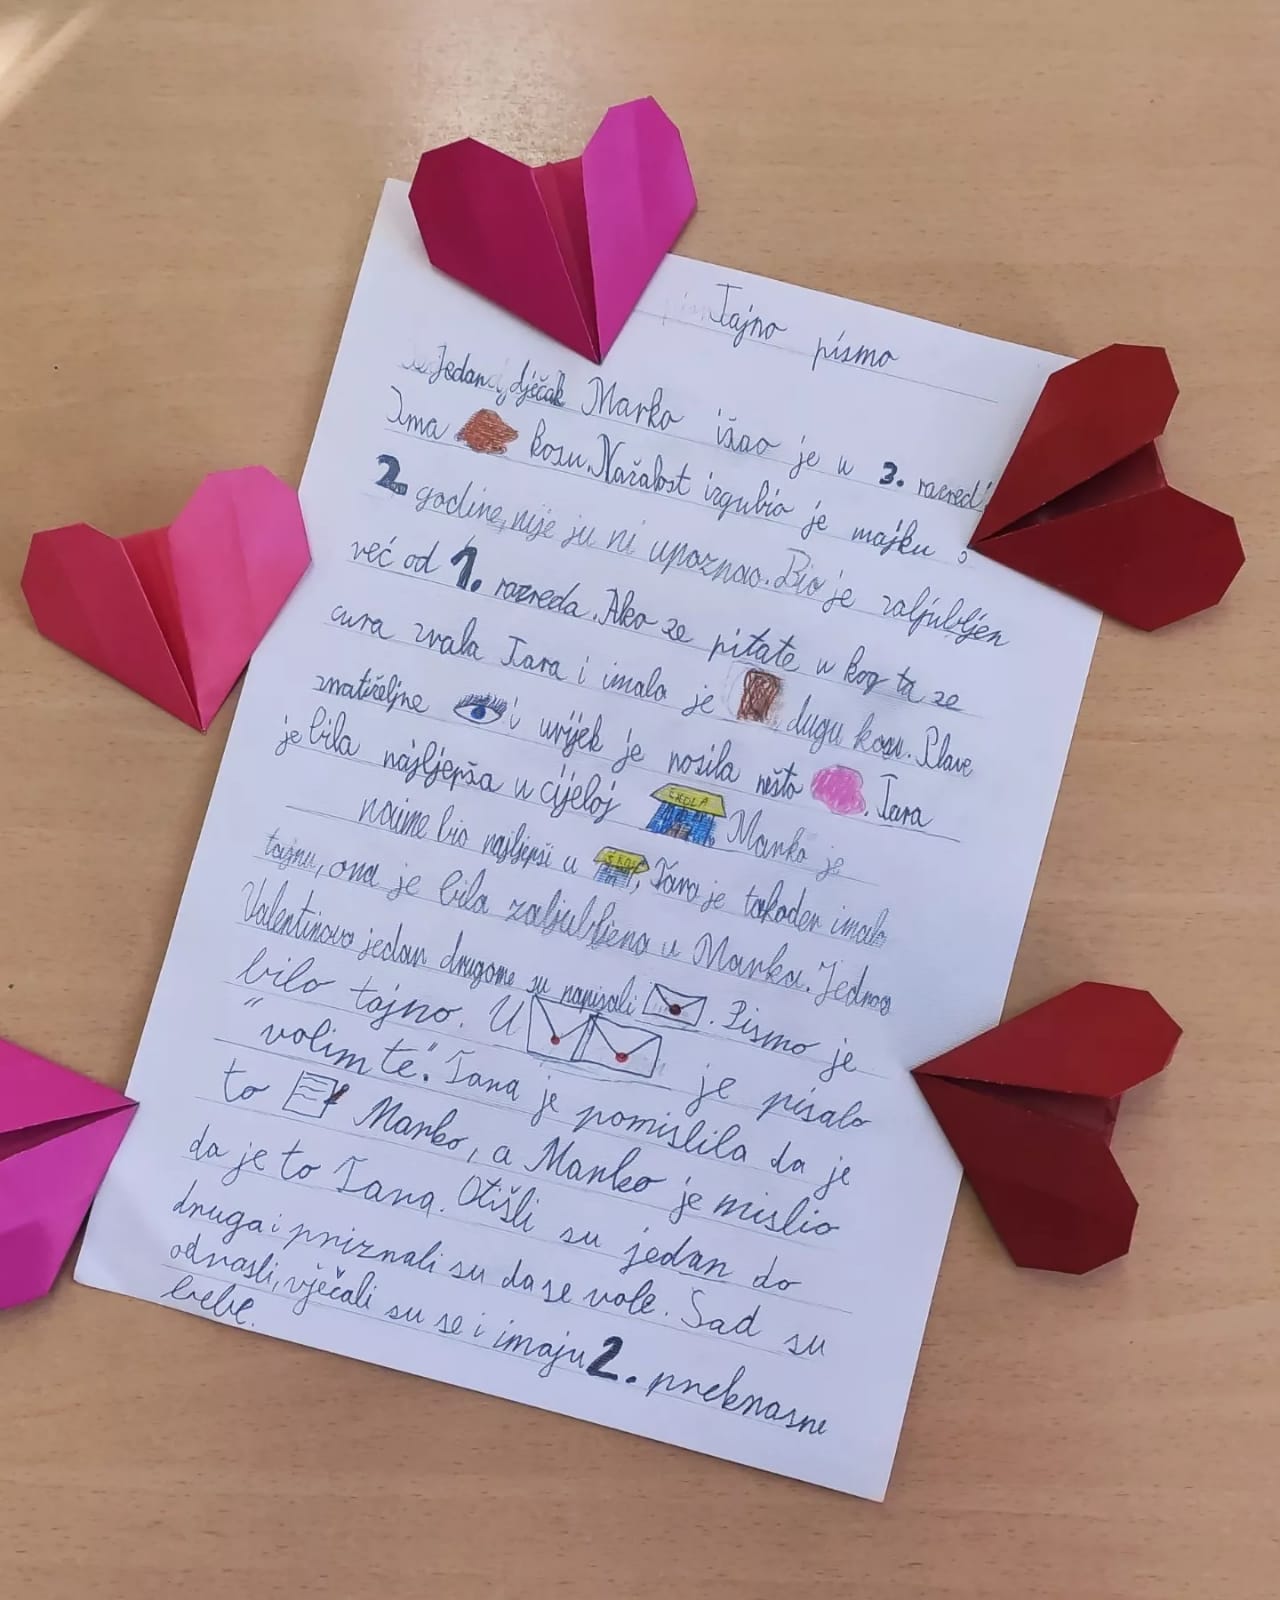 Tajno pismo
Jedan dječak Marko išao je u 3. razred.
Ima kosu. Nažalost izgubio je majku s
2. godine, nije ju ni upoznao. Bio je zaljubljen
već od 1. razreda. Ako se pitate u kog ta se
cura zvala Tara i imala je dugu kosu. Plave
znatiželjne i uvijek je nosila nešto . Tara
je bila najljepša u cijeloj ŠKOLA . Marko je
naime bio najljepši u ŠKOLA , Tara je također imala
tajnu, ona je bila zaljubljena u Marka. Jednog
Valentinova jedan drugome su napisali . Pismo je
bilo tajno. U je pisalo
"volim te". Tara je pomislila da je
to Marko, a Marko je mislio
da je to Tara. Otišli su jedan do
druga i priznali su da se vole. Sad su
odrasli, vječali su se i imaju 2. prekrasne
bebe.